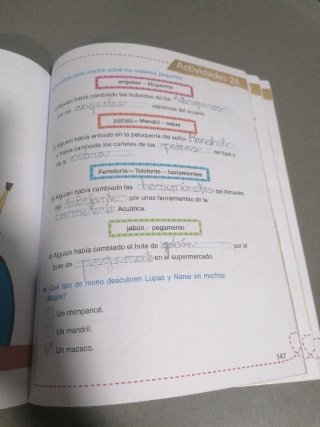 Actividades 24
cada oración sobre los misterios pequeños.
angulas – tiloperos
Alguien había cambiado las bufandas de los
por las angulas eléctricas del acuario.
perros – Mandril – cebra
Alguien había entrado en la peluquería del señor Mandril
y había cambiado los carteles de los perros del tigre y
de la cebra
Ferretería – Telefante – herramientas
3) Alguien había cambiado las del Almacén
por unas herramientas de la
Acuática.
jabón – pegamento
4) Alguien había cambiado el bote de jabón por el
bote de en el supermercado.
¿Qué tipo de mono descubren Lupas y Nanai en muchos
dibujos?
Un chimpancé.
Un mandril.
Un macaco.
147